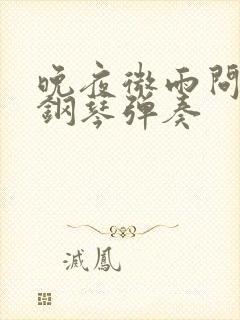 晚夜微雨問
鋼琴彈奏
滅鳳